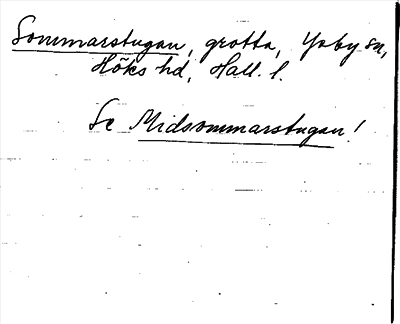 Sommarstugan, grotta, Ysby sn,
Höks hd, Hall. l.
Se Midsommarstugan!